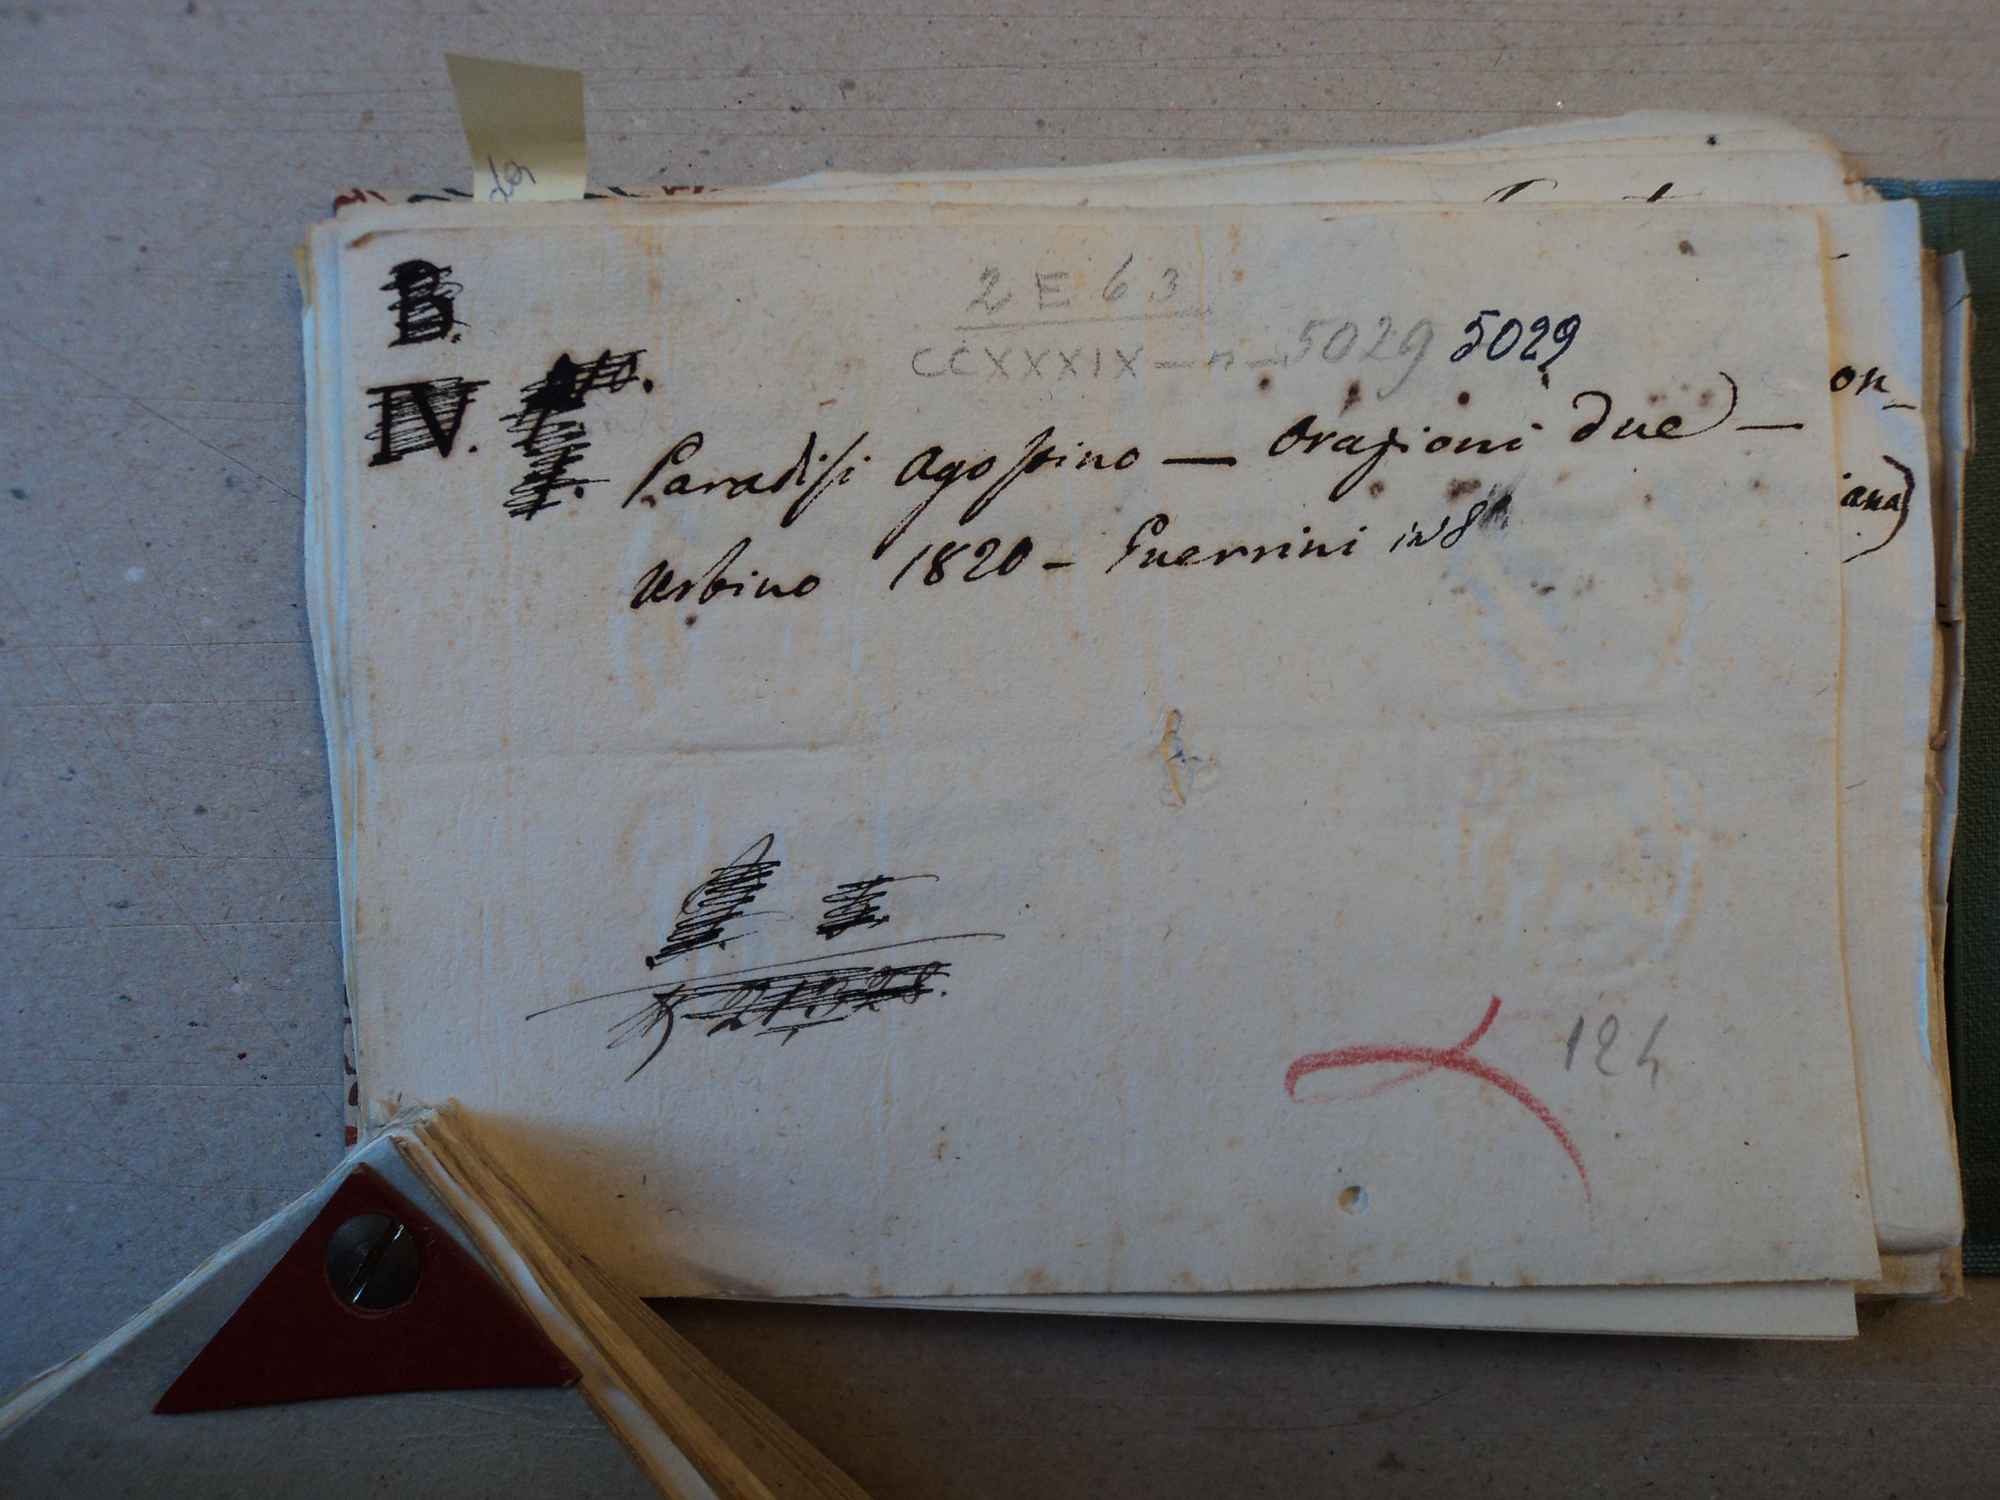 B.
2 E 63
CCXXXIX - n - 5029 5029
IV.
Paradisi Agostino — Orazioni due —
Urbino 1820 - Guerrini in 8
on-
iana)
124